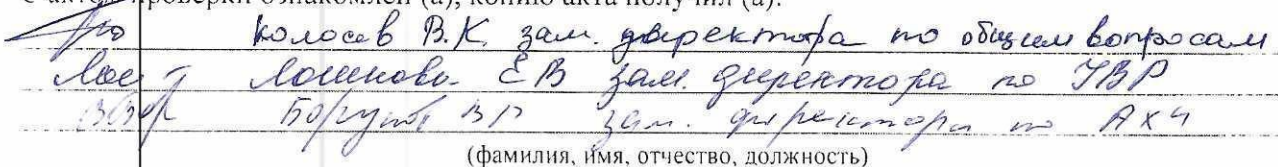 С актом проверки ознакомлен (а), копию акта получил (а):
Колосов В.К. зам. директора по общим вопросам
ЕВ зам. директора по УВР
ВР зам. директора по АХЧ
(фамилия, имя, отчество, должность)